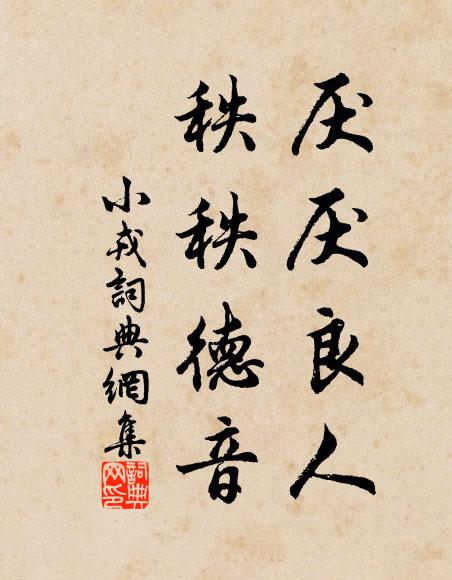 厌厌良人
秩秩德音
小戎詞典網集
詞典
网印